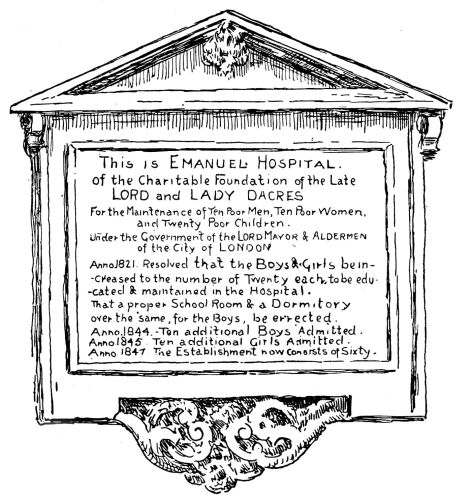 This is EMANUEL HOSPITAL.
of the Charitable Foundation of the Late
LORD and LADY DACRES
For the Maintenance of Ten Poor Men, Ten Poor Women,
and Twenty Poor Children.
Under the Government of the LORD MAYOR & ALDERMEN
of the City of LONDON
Anno 1821. Resolved that the Boys & Girls be in-
-creased to the number of Twenty each, to be edu-
cated & maintained in the Hospital.
That a proper School Room & a Dormitory
over the same, for the Boys, be errected.
Anno. 1844.- Ten additional Boys Admitted.
Anno 1845. Ten additional Girls Admitted.
Anno 1847 The Establishment now consists of Sixty.